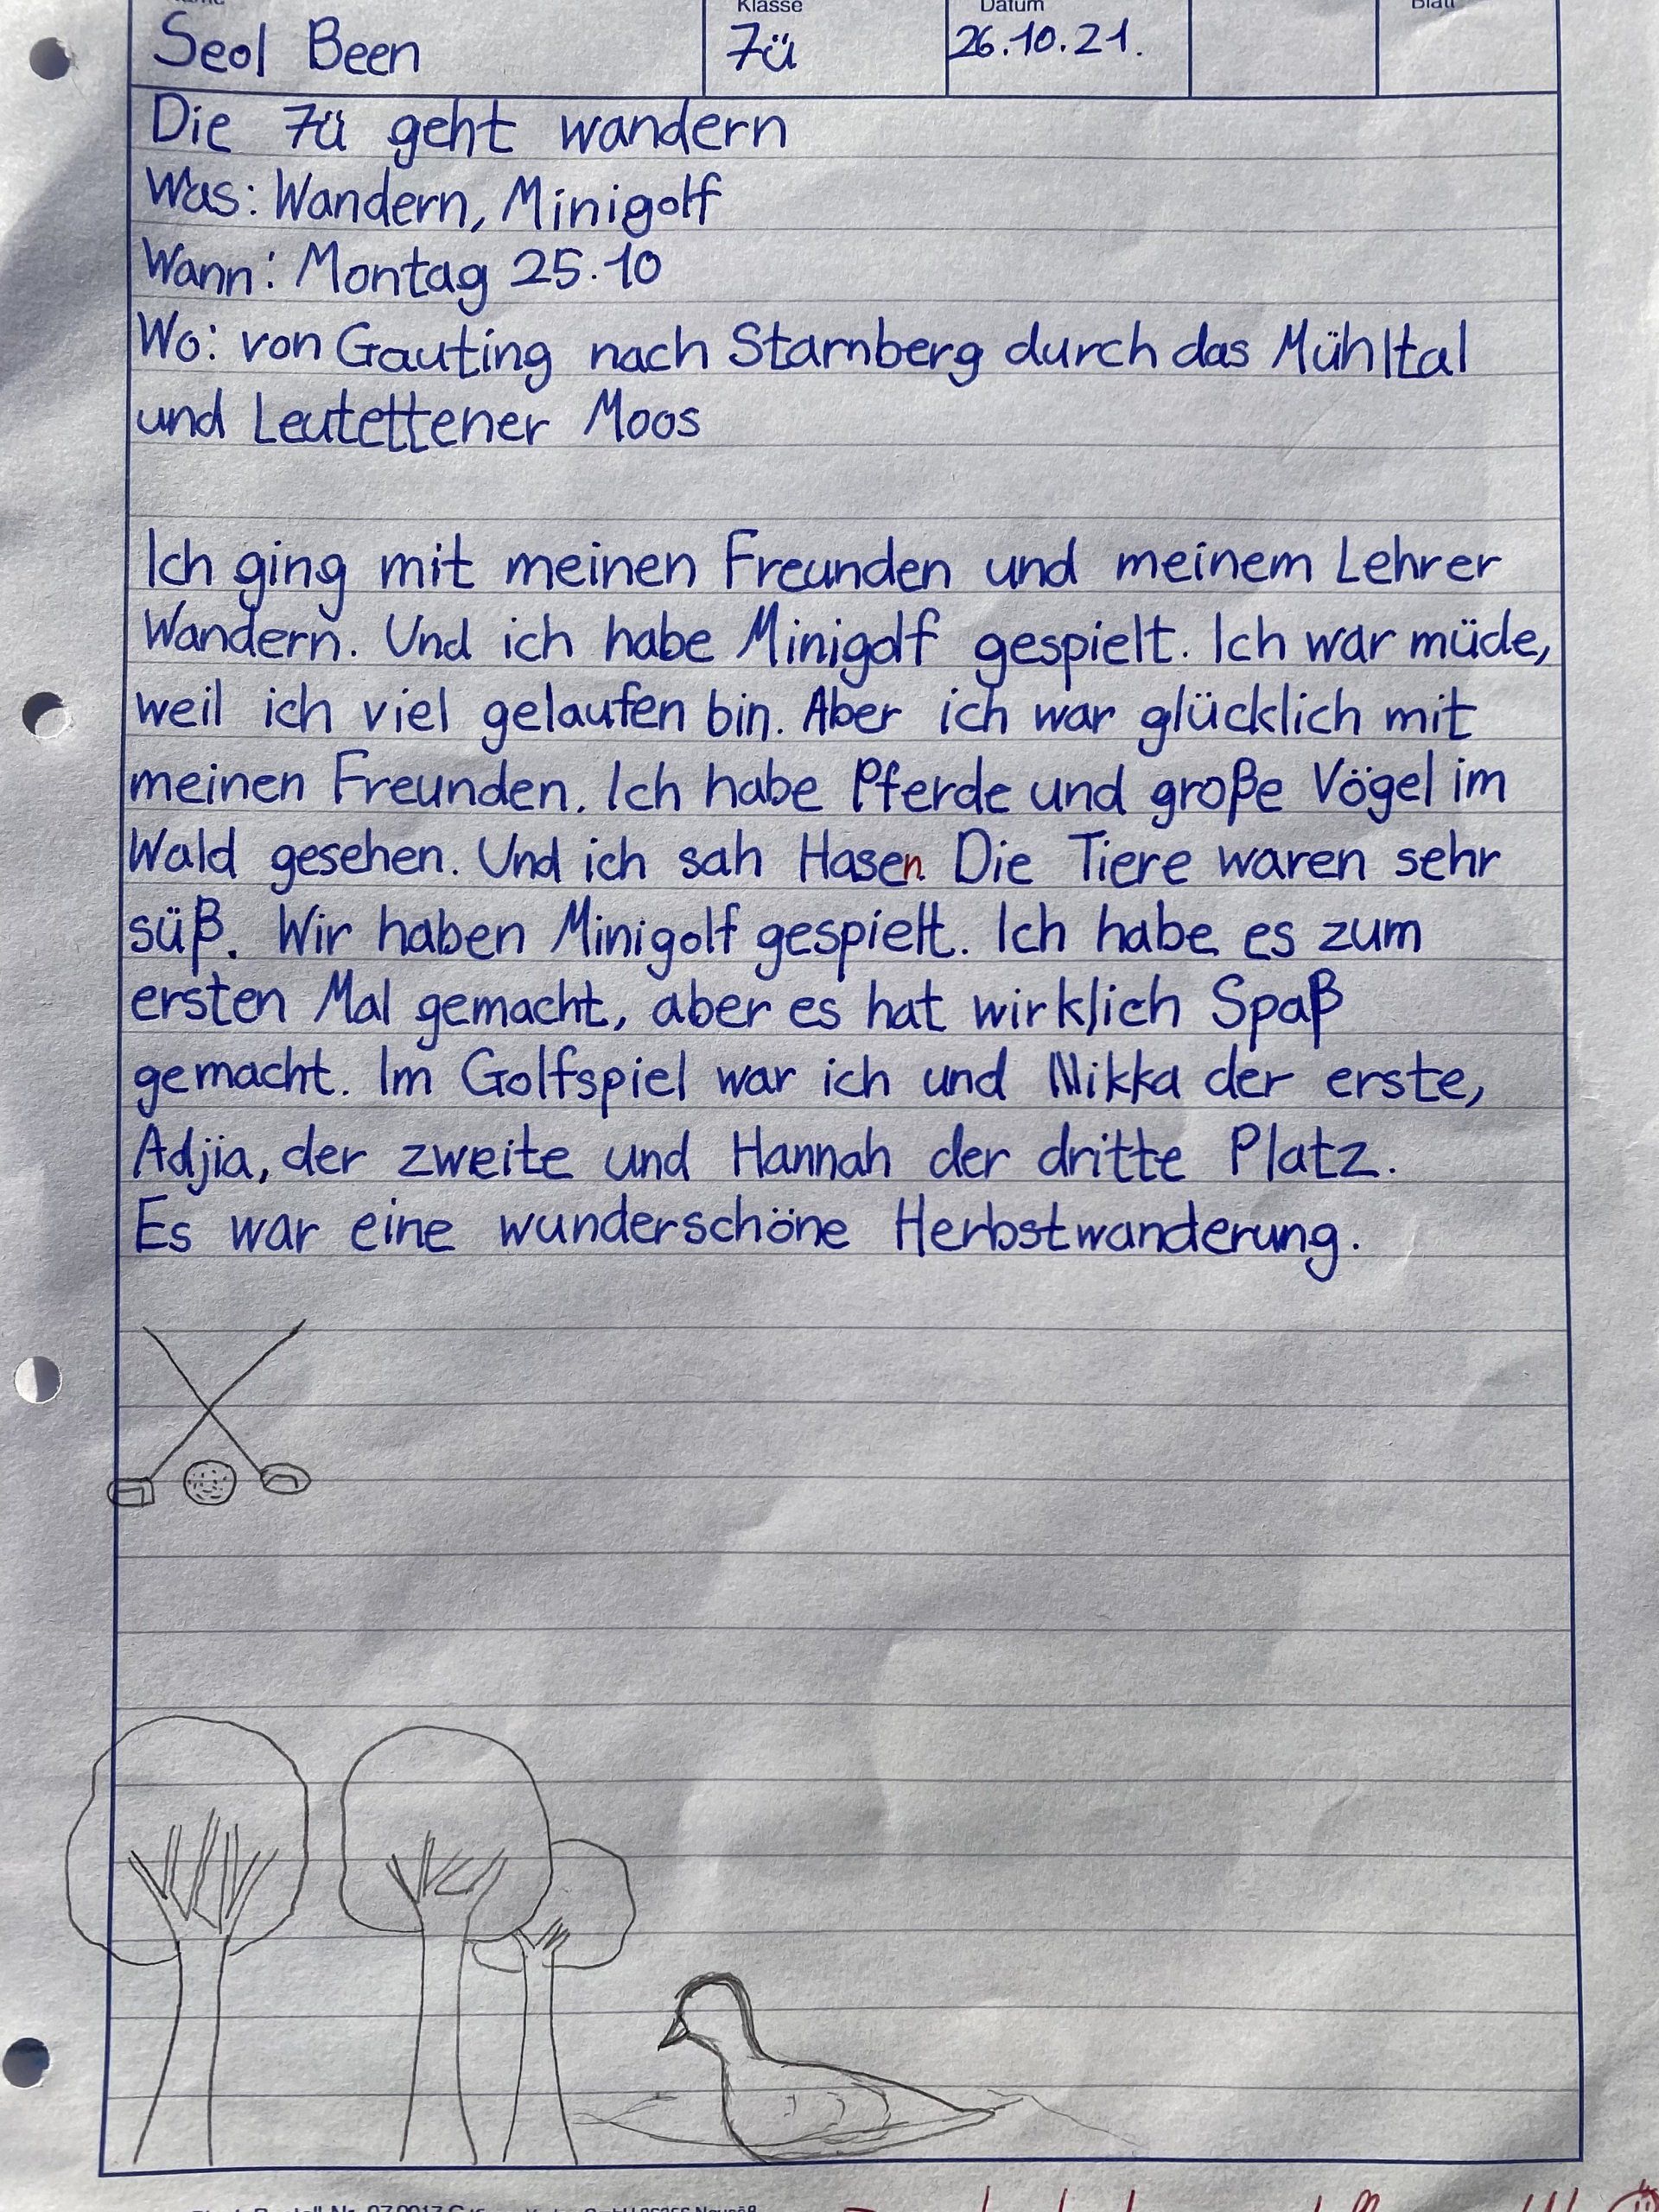 Klasse Datum Blatt
Seol Been 7ü 26.10.21.
Die 7ü geht wandern
Was: Wandern, Minigolf
Wann: Montag 25.10
Wo: von Gauting nach Starnberg durch das Mühltal
und Leutettener Moos
Ich ging mit meinen Freunden und meinem Lehrer
Wandern. Und ich habe Minigolf gespielt. Ich war müde,
weil ich viel gelaufen bin. Aber ich war glücklich mit
meinen Freunden. Ich habe Pferde und große Vögel im
Wald gesehen. Und ich sah Hasen. Die Tiere waren sehr
süß. Wir haben Minigolf gespielt. Ich habe es zum
ersten Mal gemacht, aber es hat wirklich Spaß
gemacht. Im Golfspiel war ich und Nikka der erste,
Adjia, der zweite und Hannah der dritte Platz.
Es war eine wunderschöne Herbstwanderung.